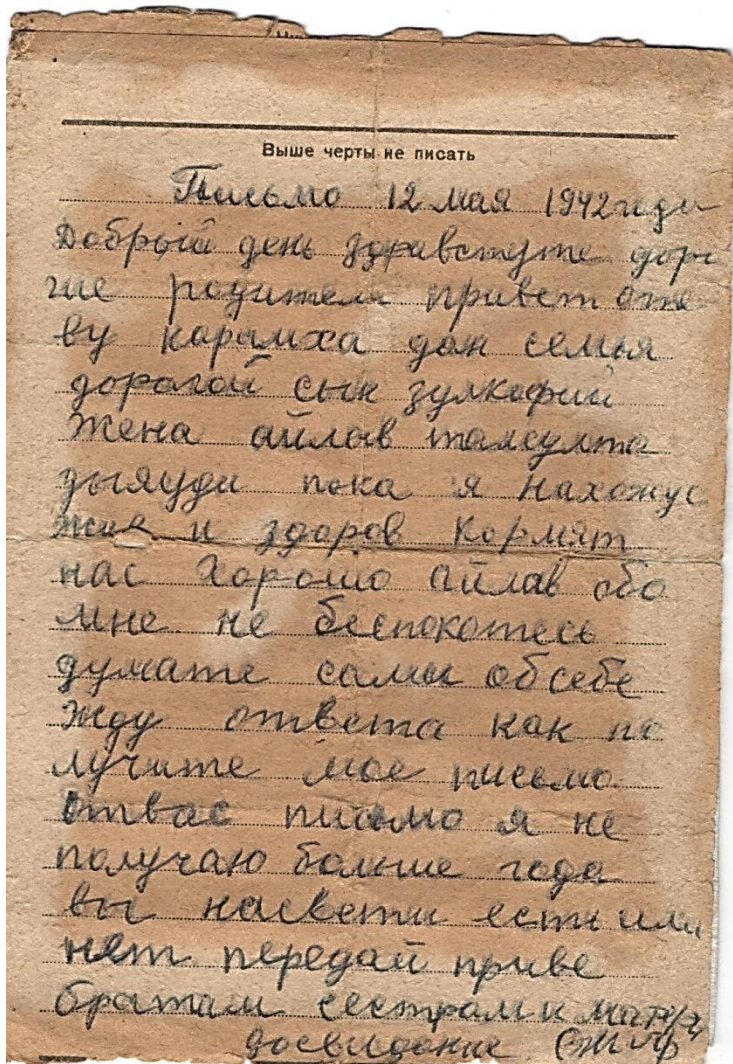 Выше черты не писать
Письмо 12 мая 1942 года
Добрый день здравствуте доро
гие родители привет отте
ву карамха дан семья
дорогой сын зулкофий
жена айлав
пока я нахожус
жив и здоров Кормят
нас хорошо айлав обо
мне не беспокотесь
думате сами обсебе
жду ответа как по
лучите мое писмо
отвас писмо я не
получаю больше года
вы насвети есть или
нет передай приве
братам сестрам и матери
досвидение